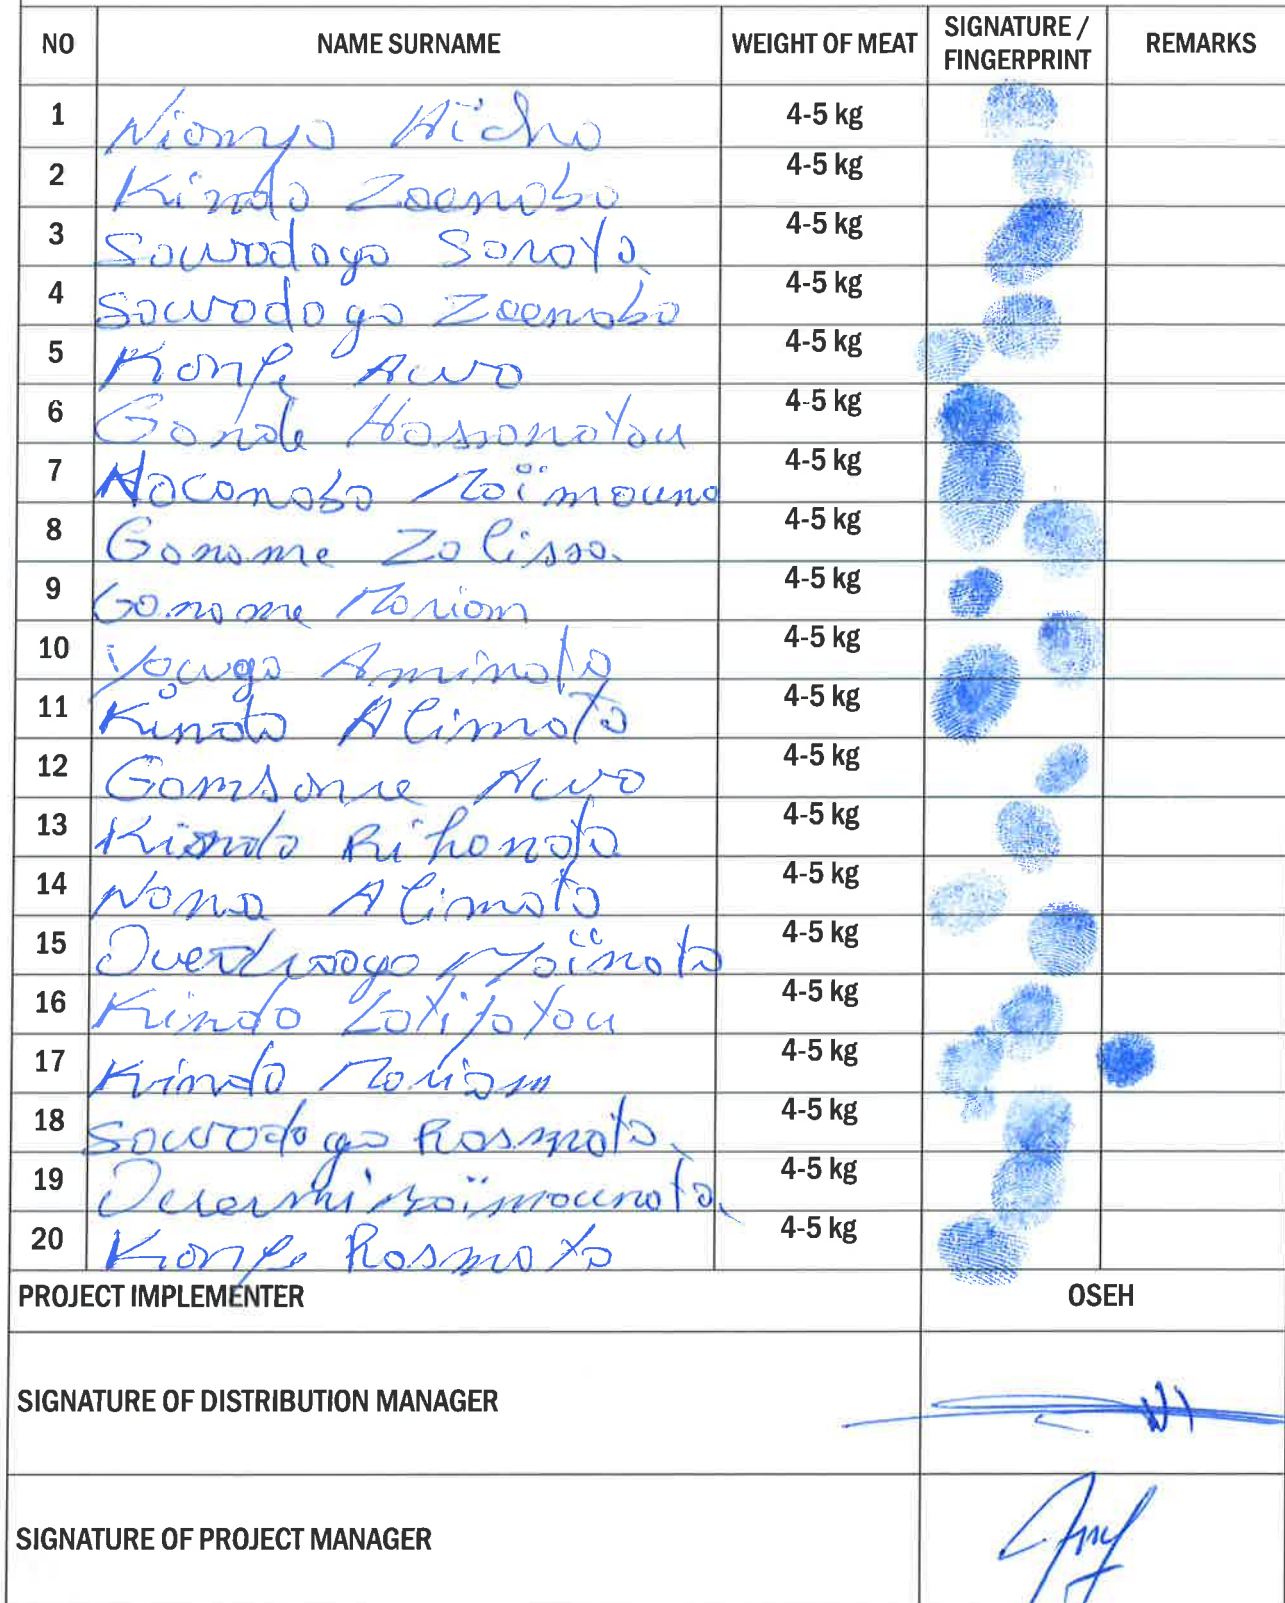 NO NAME SURNAME WEIGHT OF MEAT SIGNATURE / FINGERPRINT REMARKS
1 Niamya Aïcha 4-5 kg
2 Kindo Zoenabo 4-5 kg
3 Sawadogo Sanata 4-5 kg
4 Sawadogo Zoenabo 4-5 kg
5 Konfe Awa 4-5 kg
6 Gande Hassanatou 4-5 kg
7 Naconabo Maïmouna 4-5 kg
8 Ganame Zalissa 4-5 kg
9 Ganame Mariam 4-5 kg
10 Yauga Aminata 4-5 kg
11 Kindo Alimata 4-5 kg
12 Gamsonre Awa 4-5 kg
13 Kindo Rihanata 4-5 kg
14 Nana Alimata 4-5 kg
15 Ouedraogo Maïnata 4-5 kg
16 Kindo Latifatou 4-5 kg
17 Kindo Mariam 4-5 kg
18 Sawadogo Rasmata 4-5 kg
19 Ouermi Maïmounata 4-5 kg
20 Konfe Rasmata 4-5 kg
PROJECT IMPLEMENTER OSEH
SIGNATURE OF DISTRIBUTION MANAGER
SIGNATURE OF PROJECT MANAGER